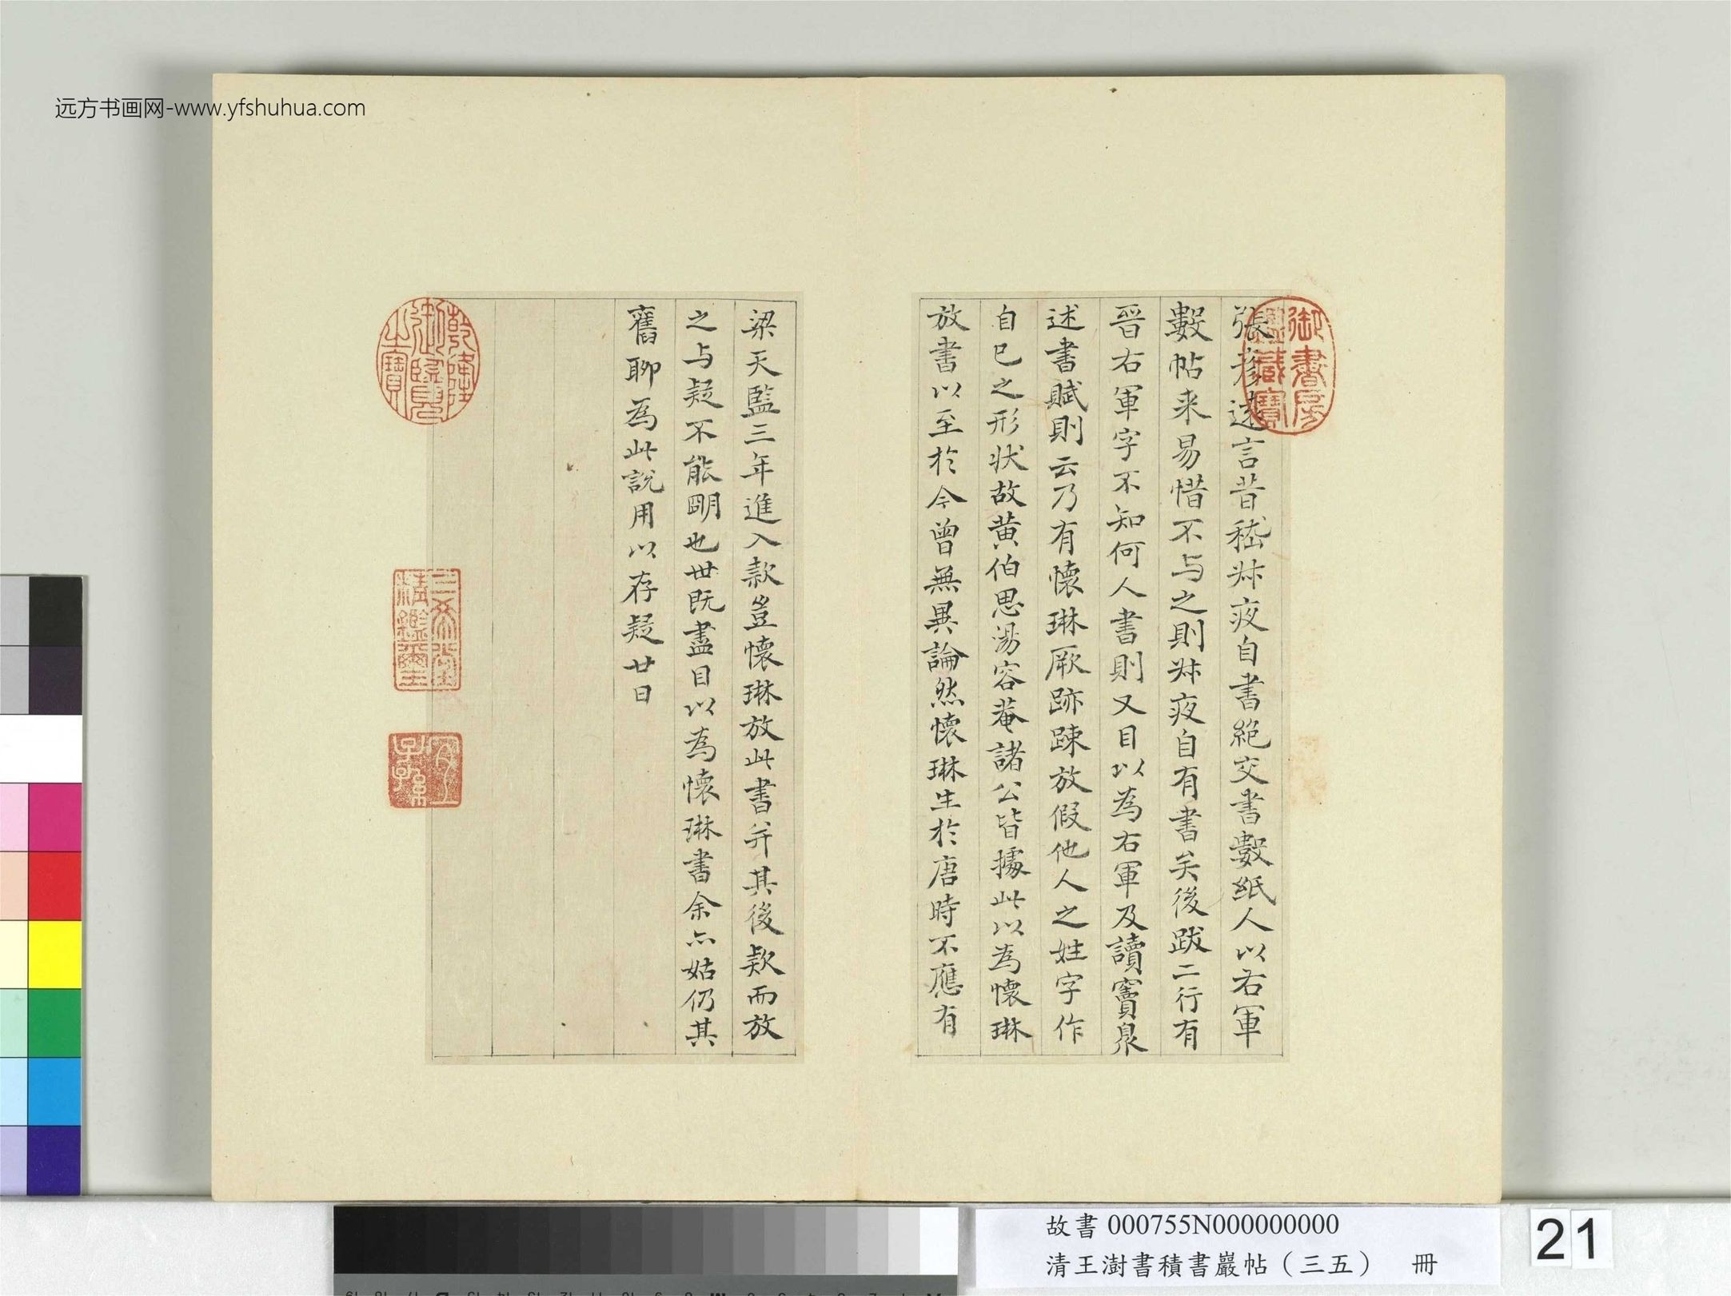 远方书画网-www.yfshuhua.com
張彦遠言昔嵇叔夜自書絶交書數紙人以右軍
數帖来易惜不与之則叔夜自有書矣後跋二行有
晋右軍字不知何人書則又目以為右軍及讀竇臮
述書賦則云乃有懷琳厥跡踈放假他人之姓字作
自己之形状故黄伯思湯容菴諸公皆據此以為懷琳
放書以至於今曾無異論然懷琳生於唐時不應有
梁天監三年進入款豈懷琳放此書并其後款而放
之与疑不能明也世既盡目以為懷琳書余亦姑仍其
舊聊為此說用以存疑廿日
御書房鑑藏寶
乾隆御覽之寶
三希堂精鑑璽
宜子孫
故書 000755N000000000
清王澍書積書巖帖（三五） 冊
21